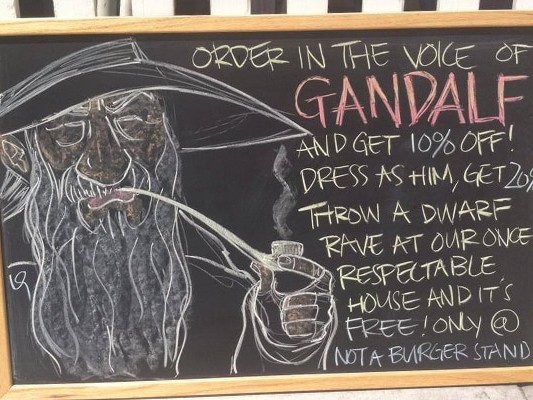 ORDER IN THE VOICE OF
GANDALF
AND GET 10% OFF!
DRESS AS HIM, GET 20%
THROW A DWARF
RAVE AT OUR ONCE
RESPECTABLE
HOUSE AND IT'S
FREE! ONLY @
NOT A BURGER STAND